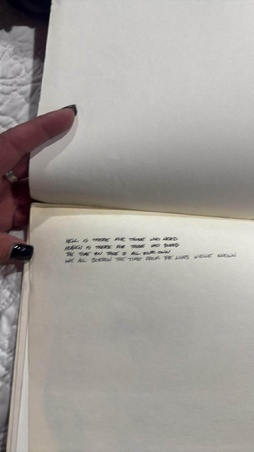 HELL IS THERE FOR THOSE WHO NEED
HEAVEN IS THERE FOR THOSE WHO
THE TIME IS ALL OUR OWN
WE ALL BORROW THE TIME FROM THE LIVES WE'VE KNOWN